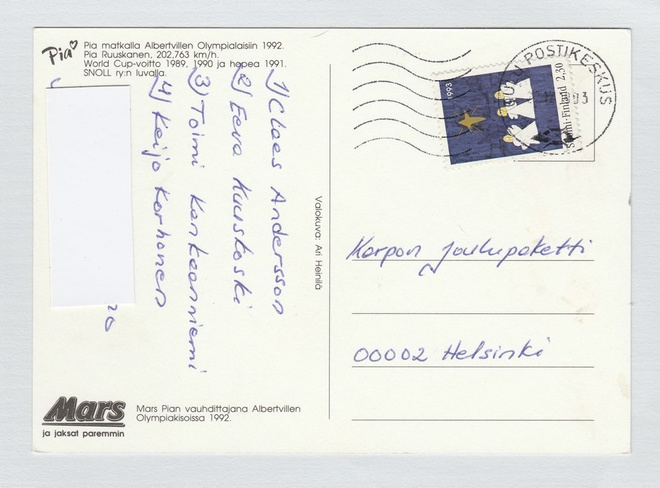 Pia
Pia matkalla Albertvillen Olympialaisiin 1992.
Pia Ruuskanen, 202,763 km/h.
World Cup-voitto 1989, 1990 ja hopea 1991.
SNOLL ry:n luvalla.
1) Claes Andersson
2) Eeva Kuuskoski
3) Toimi Kankaanniemi
4) Keijo Korhonen
20
Valokuva: Ari Heinilä
Mars
ja jaksat paremmin
Mars Pian vauhdittajana Albertvillen
Olympiakisoissa 1992.
POSTIKESKUS
1993
Suomi-Finland 2,30
Karpon joulupaketti
00002 Helsinki